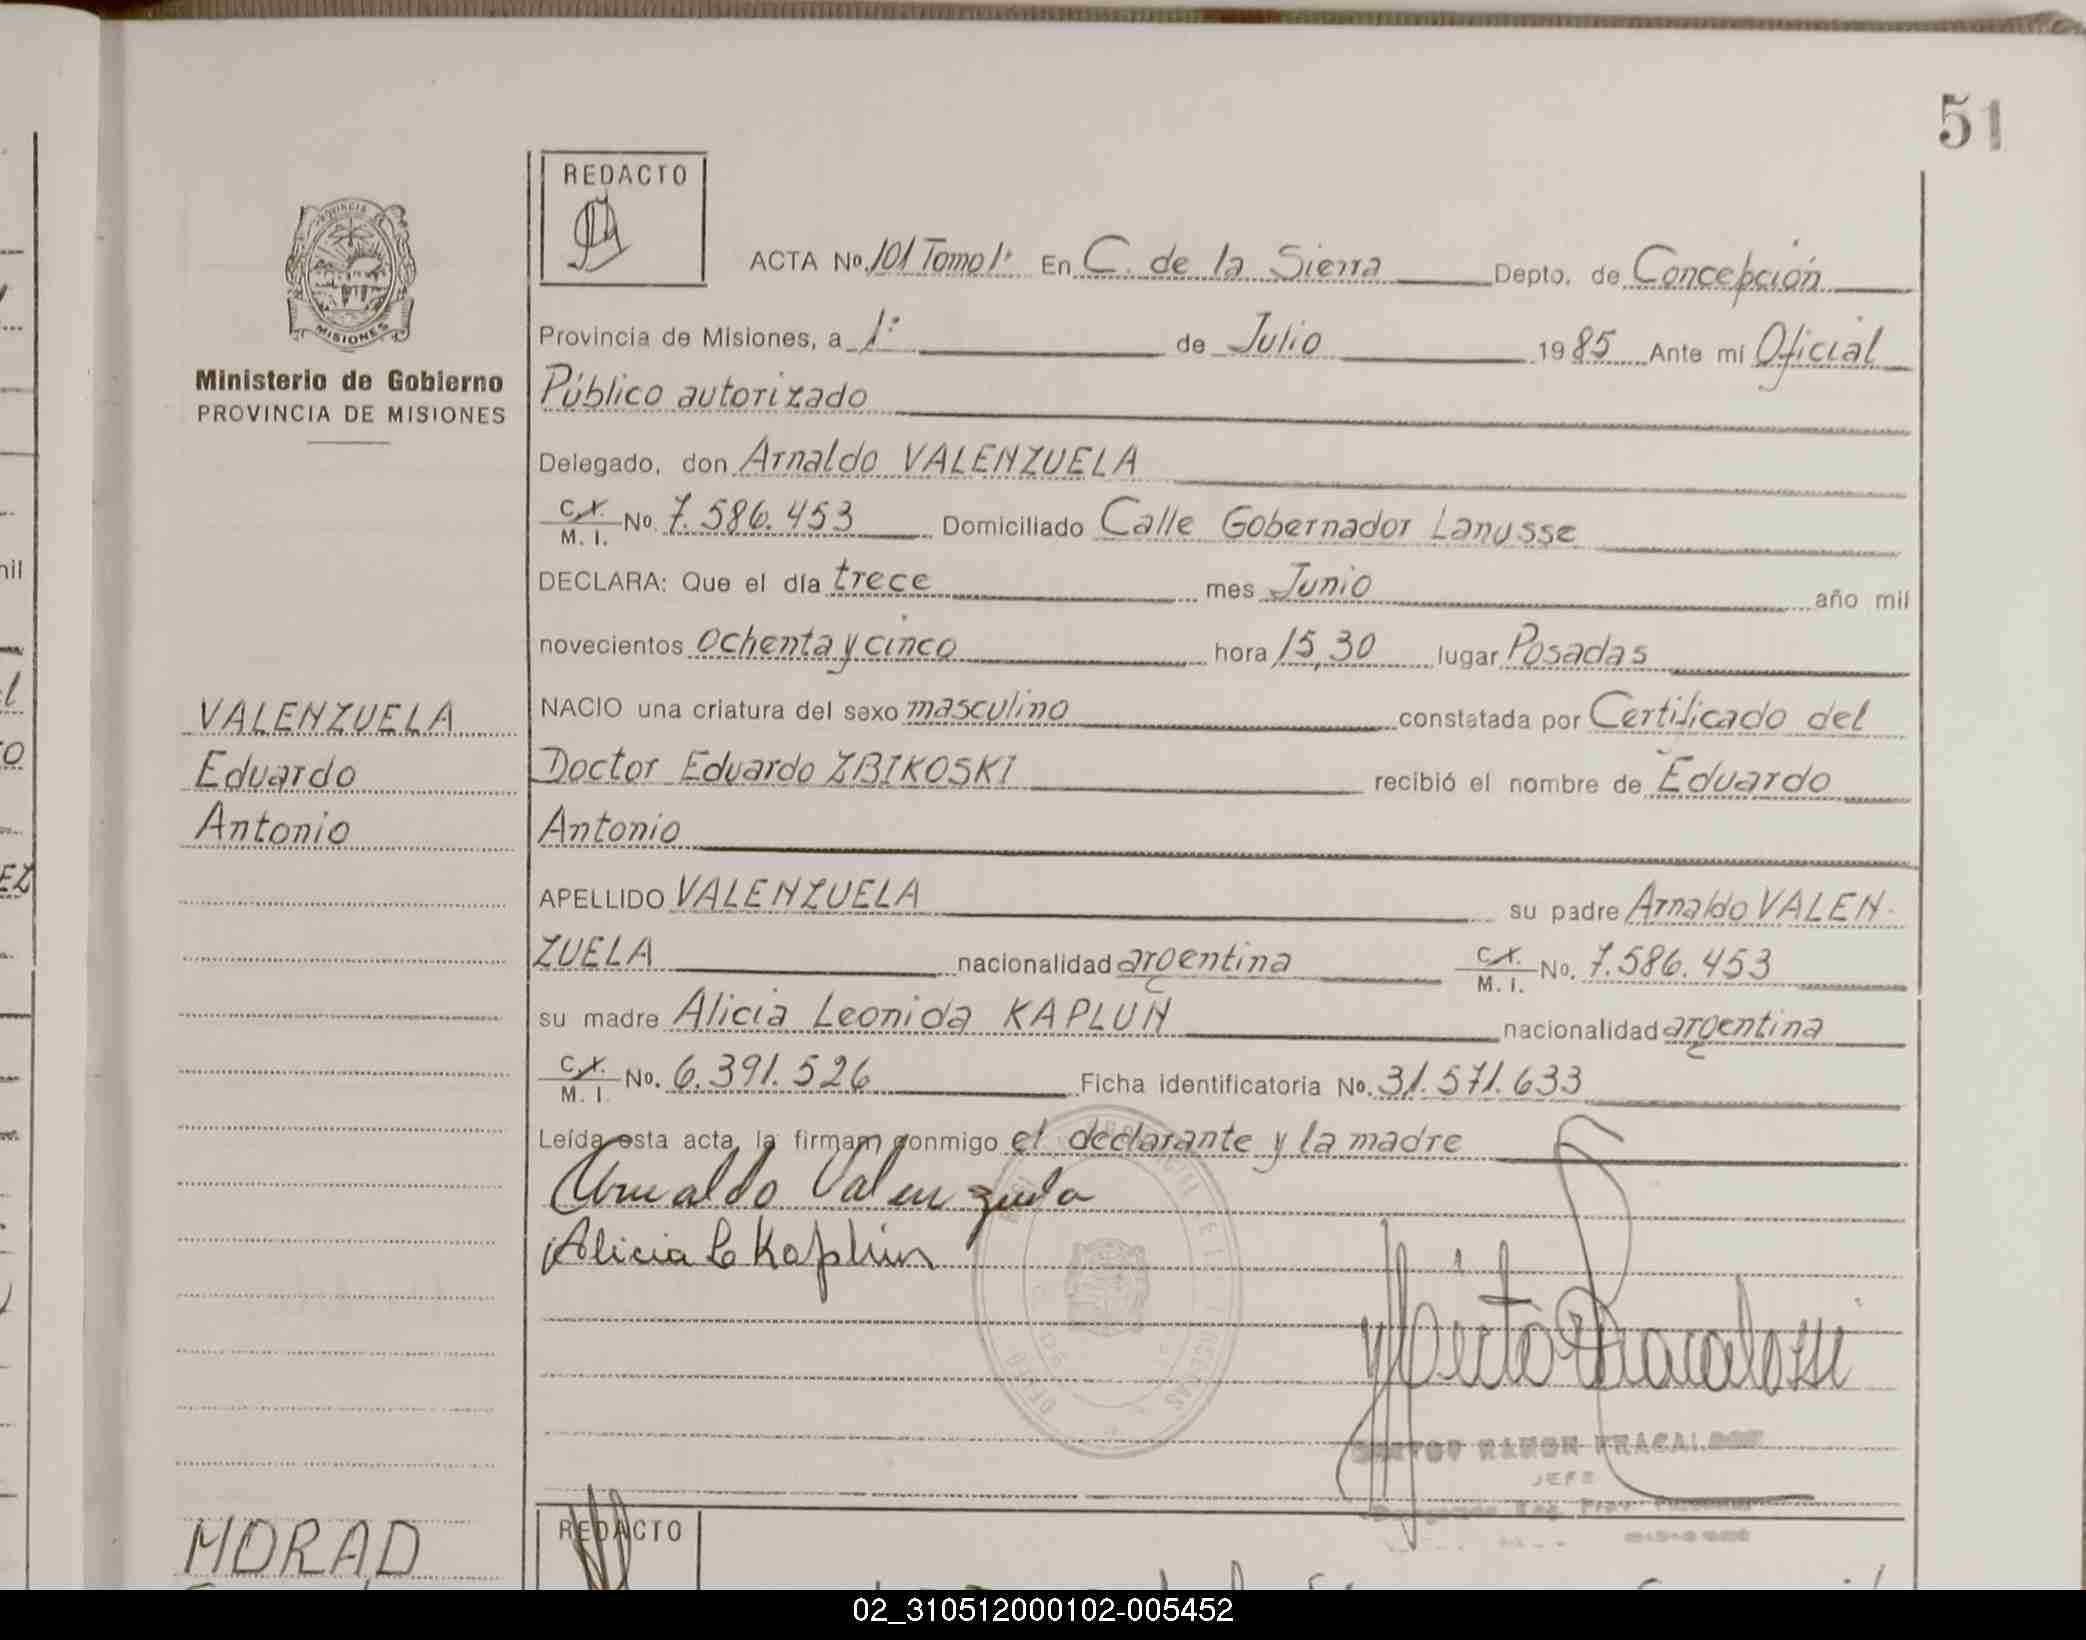 51
REDACTO
ACTA No. 101 Tomo 1° En C. de la Sierra Depto. de Concepción
PROVINCIA DE
MISIONES
Ministerio de Gobierno
PROVINCIA DE MISIONES
Provincia de Misiones, a 1° de Julio 1985 Ante mí Oficial
Público autorizado
Delegado, don Arnaldo VALENZUELA
C. I. M. I. No. 7.586.453 Domiciliado Calle Gobernador Lanusse
DECLARA: Que el día trece mes Junio año mil
novecientos ochenta y cinco hora 15,30 lugar Posadas
VALENZUELA
Eduardo
Antonio
NACIO una criatura del sexo masculino constatada por Certificado del
Doctor Eduardo ZBIKOSKI recibió el nombre de Eduardo
Antonio
APELLIDO VALENZUELA su padre Arnaldo VALEN-
ZUELA nacionalidad argentina C. I. M. I. No. 7.586.453
su madre Alicia Leonida KAPLUN nacionalidad argentina
C. I. M. I. No. 6.391.526 Ficha identificatoria No. 31.571.633
Leída esta acta, la firmam conmigo el declarante y la madre
Arnaldo Valenzuela
Alicia L Kaplun
Hector Fracalossi
HECTOR RAMON FRACALOSSI
JEFE
MORAD
REDACTO
02_310512000102-005452